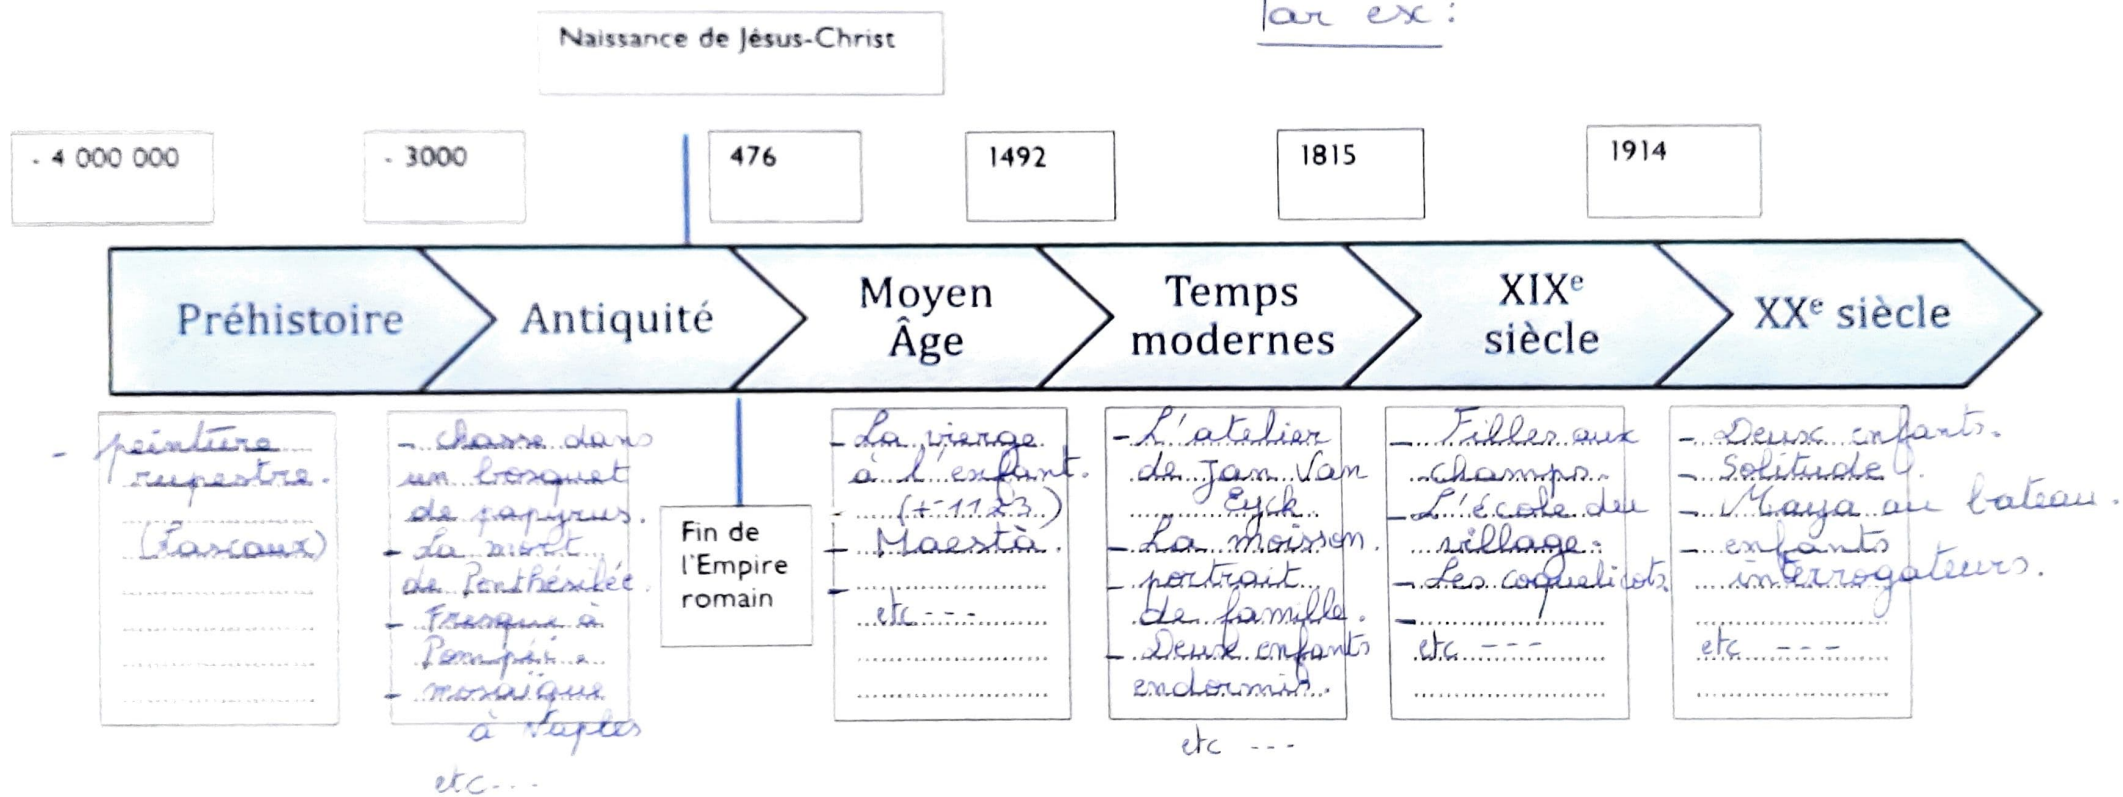 Par ex :
Naissance de Jésus-Christ
- 4 000 000
- 3000
476
1492
1815
1914
Préhistoire
Antiquité
Moyen
Âge
Temps
modernes
XIXe
siècle
XXe siècle
- peinture
rupestre.
(Lascaux)
- chasse dans
un bosquet
de papyrus.
- La mort
de Penthésilée.
- Fresque à
Pompéi.
- mosaïque
à Naples
etc...
Fin de
l'Empire
romain
- La vierge
à l'enfant.
(± 1123)
- Maestà.
-
etc ---
- L'atelier
de Jan Van
Eyck.
- La moisson.
- portrait
de famille.
- Deux enfants
endormis.
etc ---
- Filles aux
champs.
- L'école du
village.
- Les coquelicots.
-
etc ---
- Deux enfants.
- Solitude.
- Maya au bateau.
- enfants
interrogateurs.
etc ---